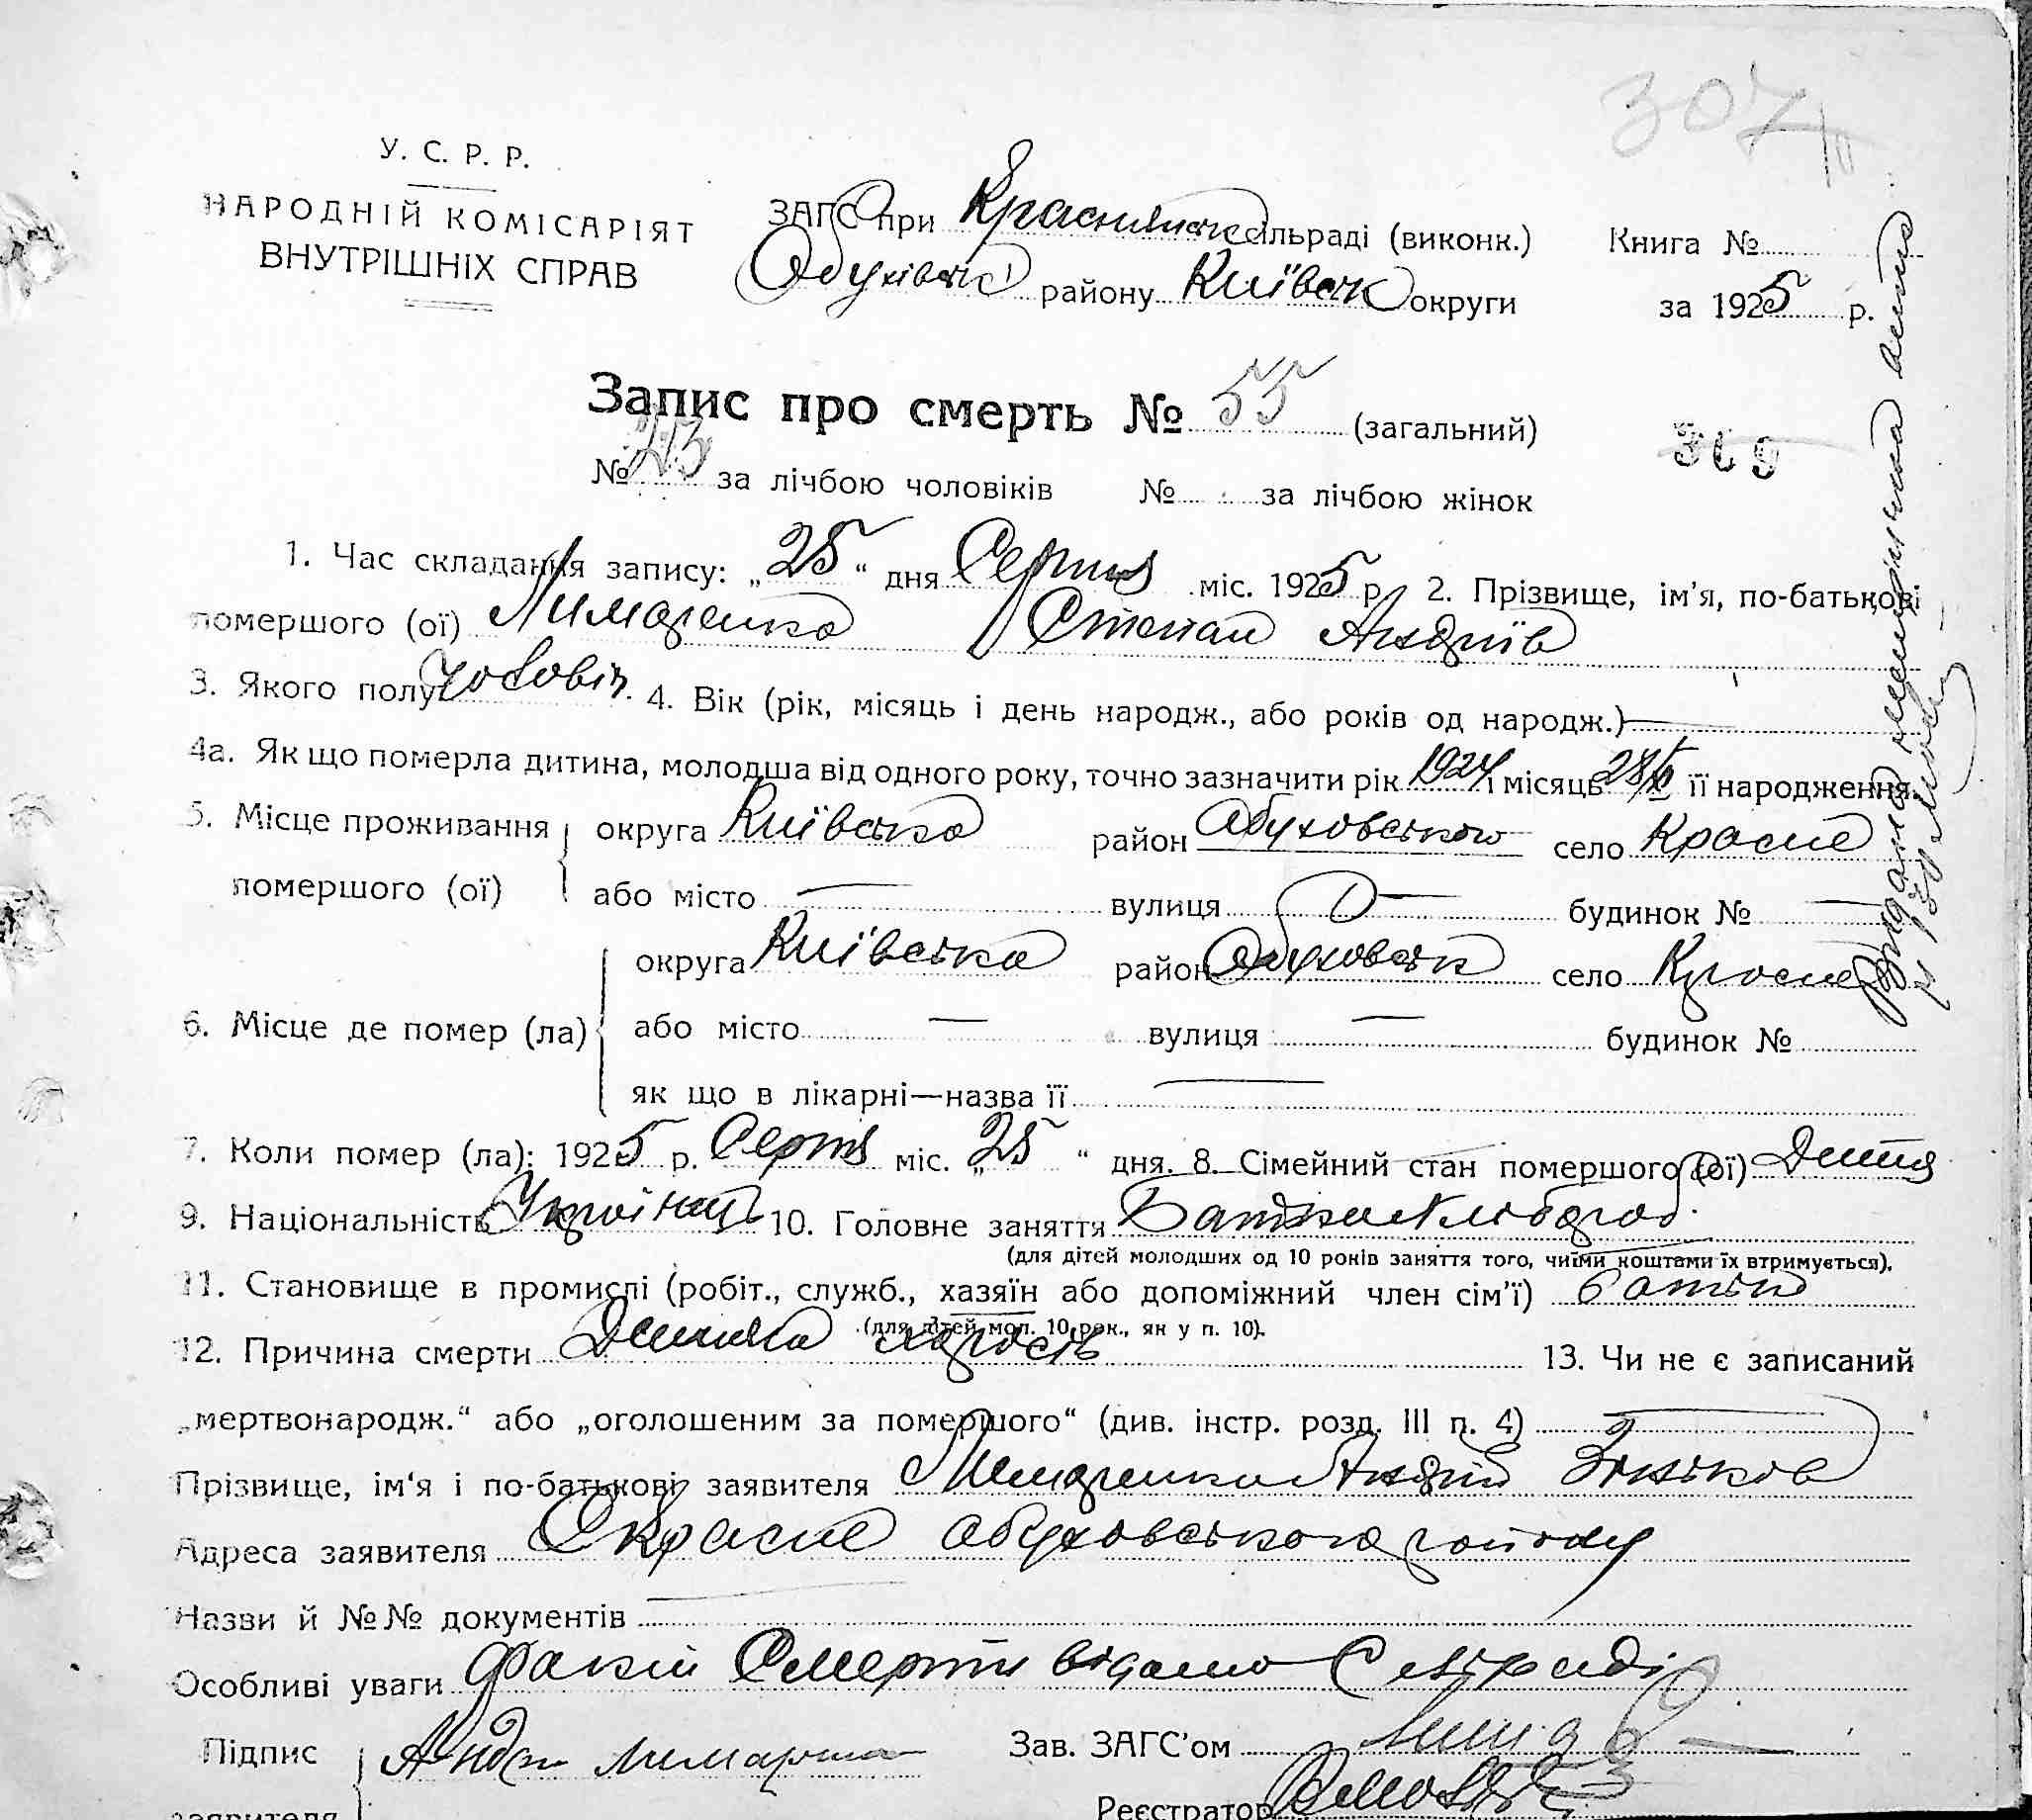 307
У. С. Р. Р.
НАРОДНІЙ КОМІСАРІЯТ
ВНУТРІШНІХ СПРАВ
ЗАГС при Краснянськ сільраді (виконк.)
Обухівськ району Київськ округи
Книга №
за 1925 р.
Запис про смерть № 55 (загальний)
309
№ 23 за лічбою чоловіків № за лічбою жінок
1. Час складання запису: „25“ дня Серпня міс. 1925 р. 2. Прізвище, ім'я, по-батькові
помершого (ої) Лимаренко Степан Андріїв
3. Якого полу Чоловіч. 4. Вік (рік, місяць і день народж., або років од народж.) —
4а. Як що померла дитина, молодша від одного року, точно зазначити рік 1924 і місяць 28/ її народження.
5. Місце проживання помершого (ої) округа Київська район Обуховського село Красне
або місто — вулиця — будинок № —
6. Місце де помер (ла) округа Київська район Обуховськ село Красне
або місто — вулиця — будинок №
як що в лікарні—назва її —
7. Коли помер (ла): 1925 р. Серпня міс. „25“ дня. 8. Сімейний стан помершого (ої) Дитя
9. Національність Українець 10. Головне заняття Батька Хлібороб.
(для дітей молодших од 10 років заняття того, чиїми коштами їх втримується).
11. Становище в промислі (робіт., служб., хазяїн або допоміжний член сім'ї) батько
(для дітей мол. 10 рок., як у п. 10).
12. Причина смерти Дитяча 13. Чи не є записаний
„мертвонародж.“ або „оголошеним за помершого“ (див. інстр. розд. III п. 4) —
Прізвище, ім'я і по-батькові заявителя Лимаренко Андрій
Адреса заявителя С Красне Обуховського району
Назви й №№ документів —
Особливі уваги Факт Смерти відомо Сельраді
Підпис заявителя Андрій Лимаренко
Зав. ЗАГС'ом
Реєстратор